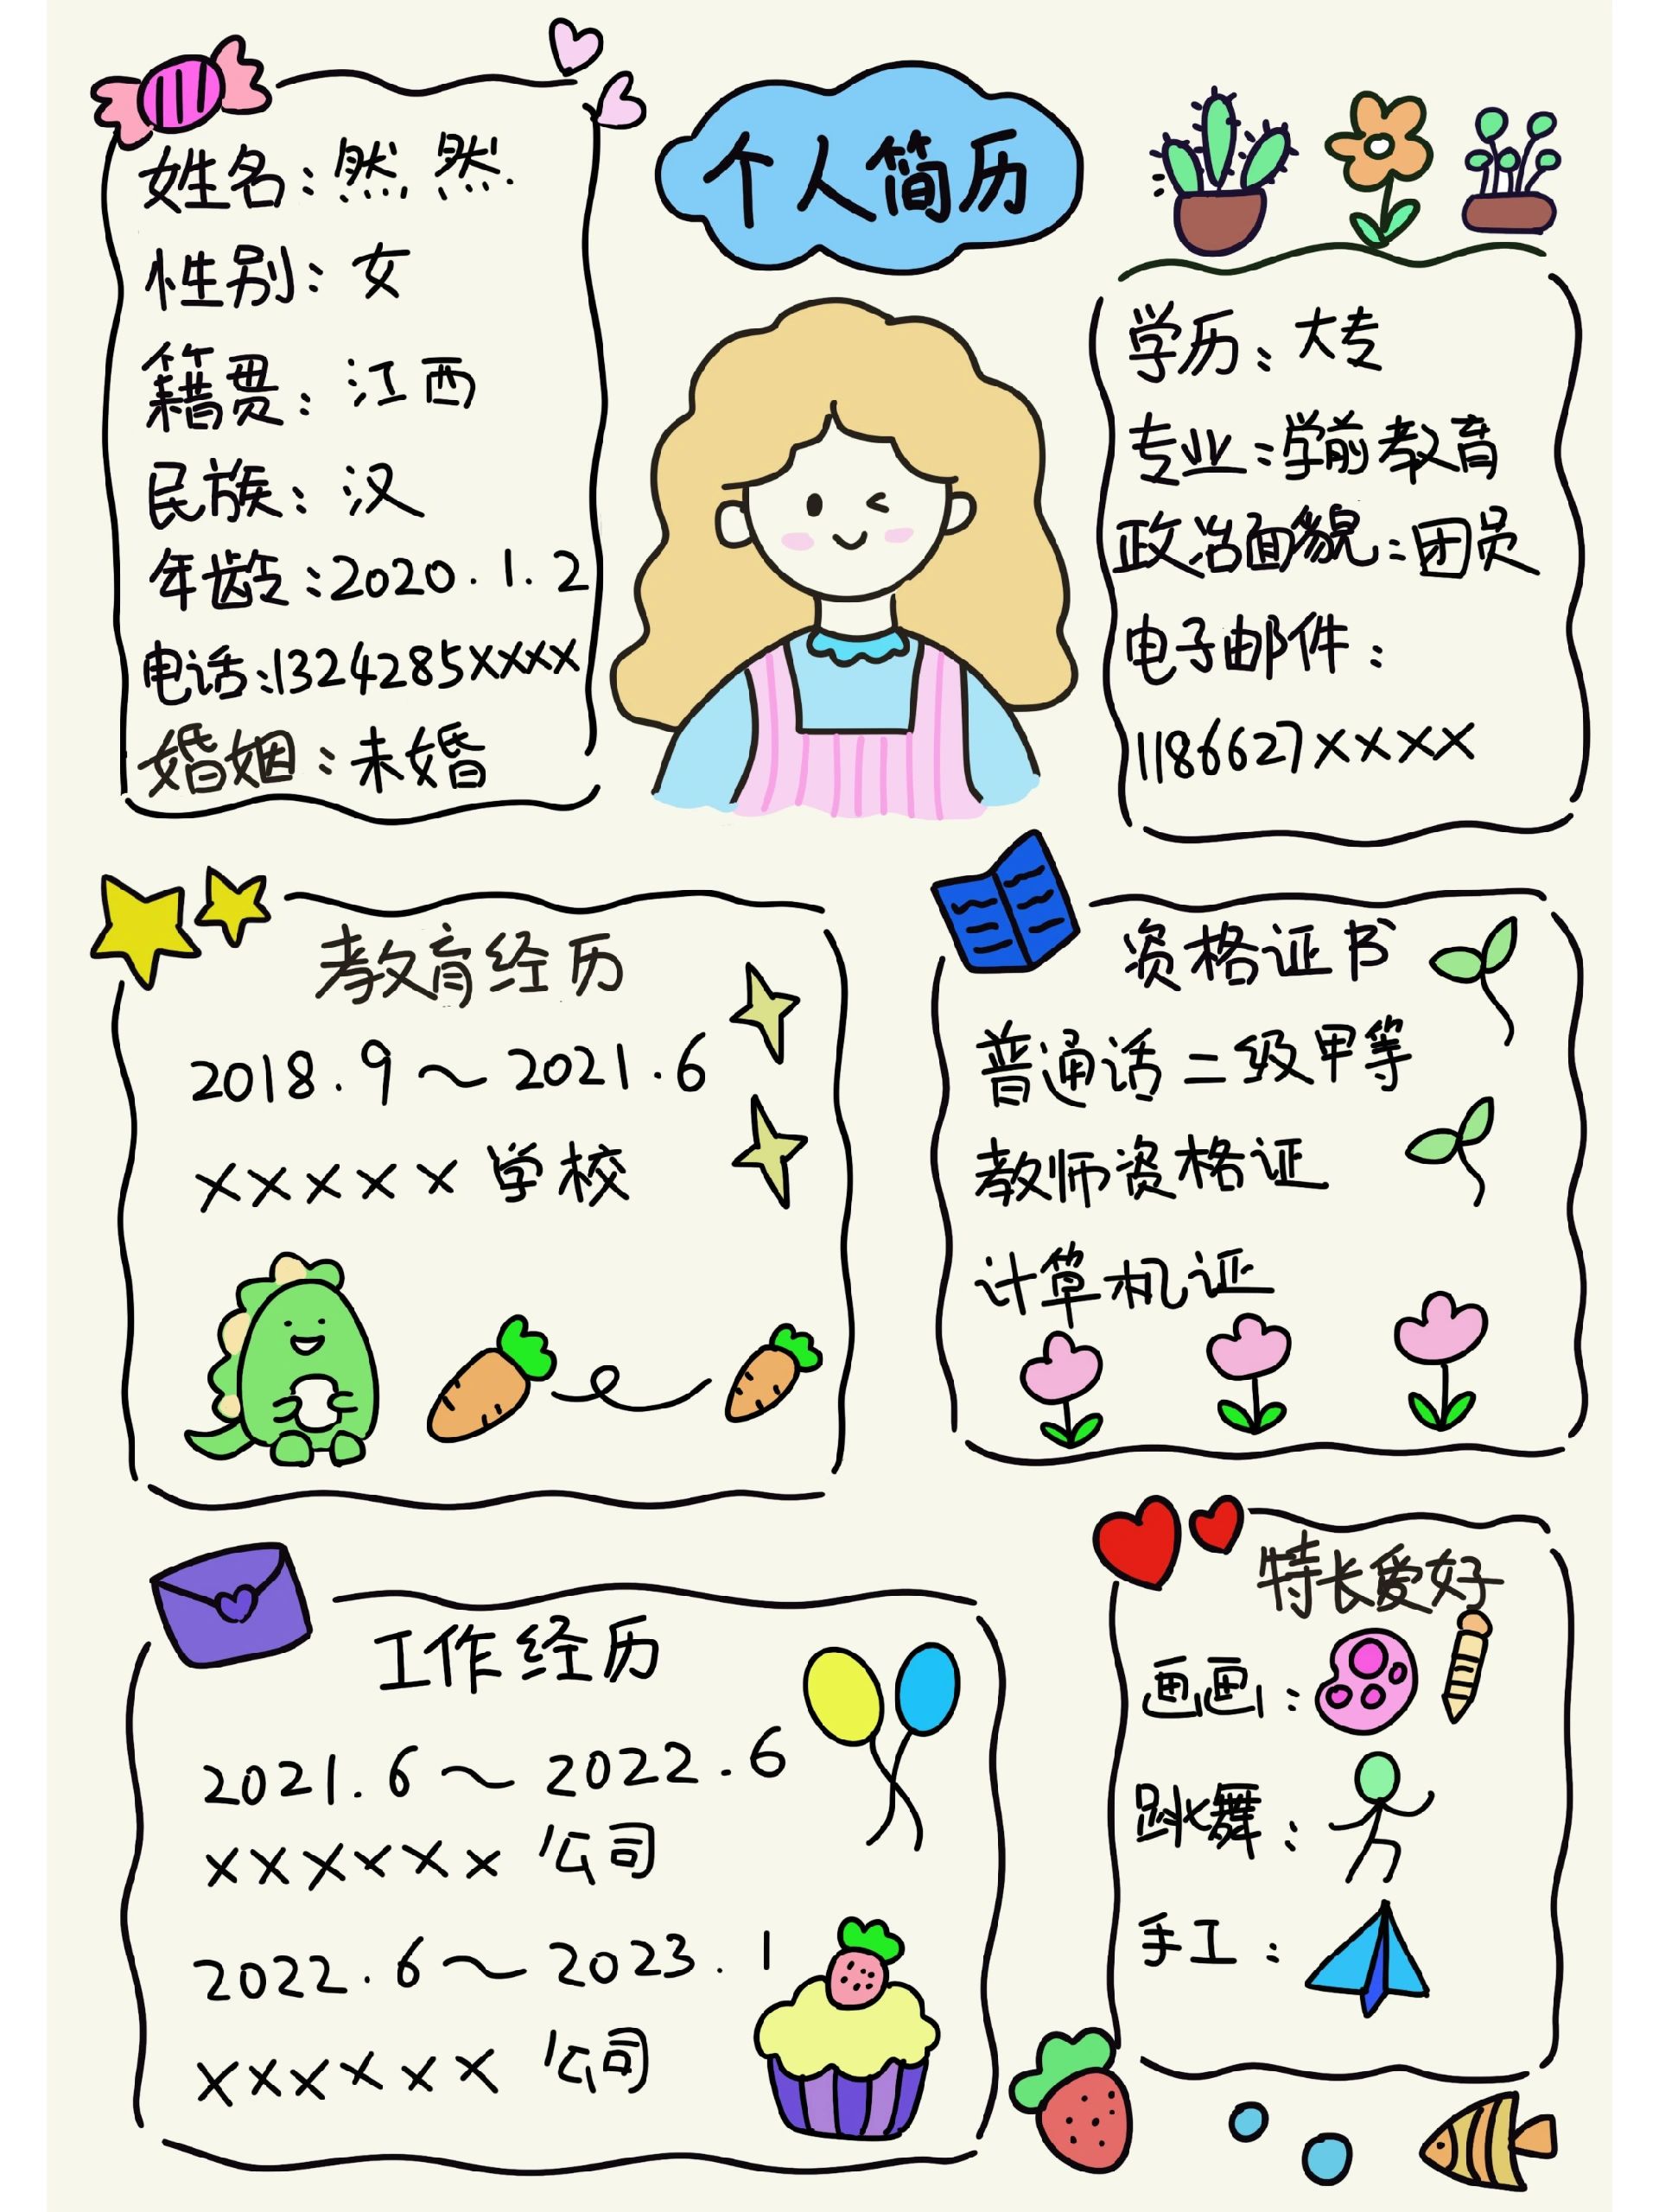 个人简历
姓名：然然
性别：女
籍贯：江西
民族：汉
年龄：2020.1.2
电话：1324285xxxx
婚姻：未婚
学历：大专
专业：学前教育
政治面貌：团员
电子邮件：
1186627xxxx
教育经历
2018.9～2021.6
xxxxx学校
资格证书
普通话二级甲等
教师资格证
计算机证
工作经历
2021.6～2022.6
xxxxxx公司
2022.6～2023.1
xxxxxx公司
特长爱好
画画：
跳舞：
手工：